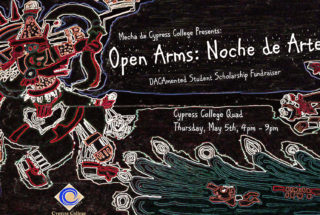 Mecha de Cypress College Presents:
Open Arms: Noche de Arte
DACAmented Student Scholarship Fundraiser
Cypress College Quad
Thursday, May 5th, 4pm - 9pm
Cypress College